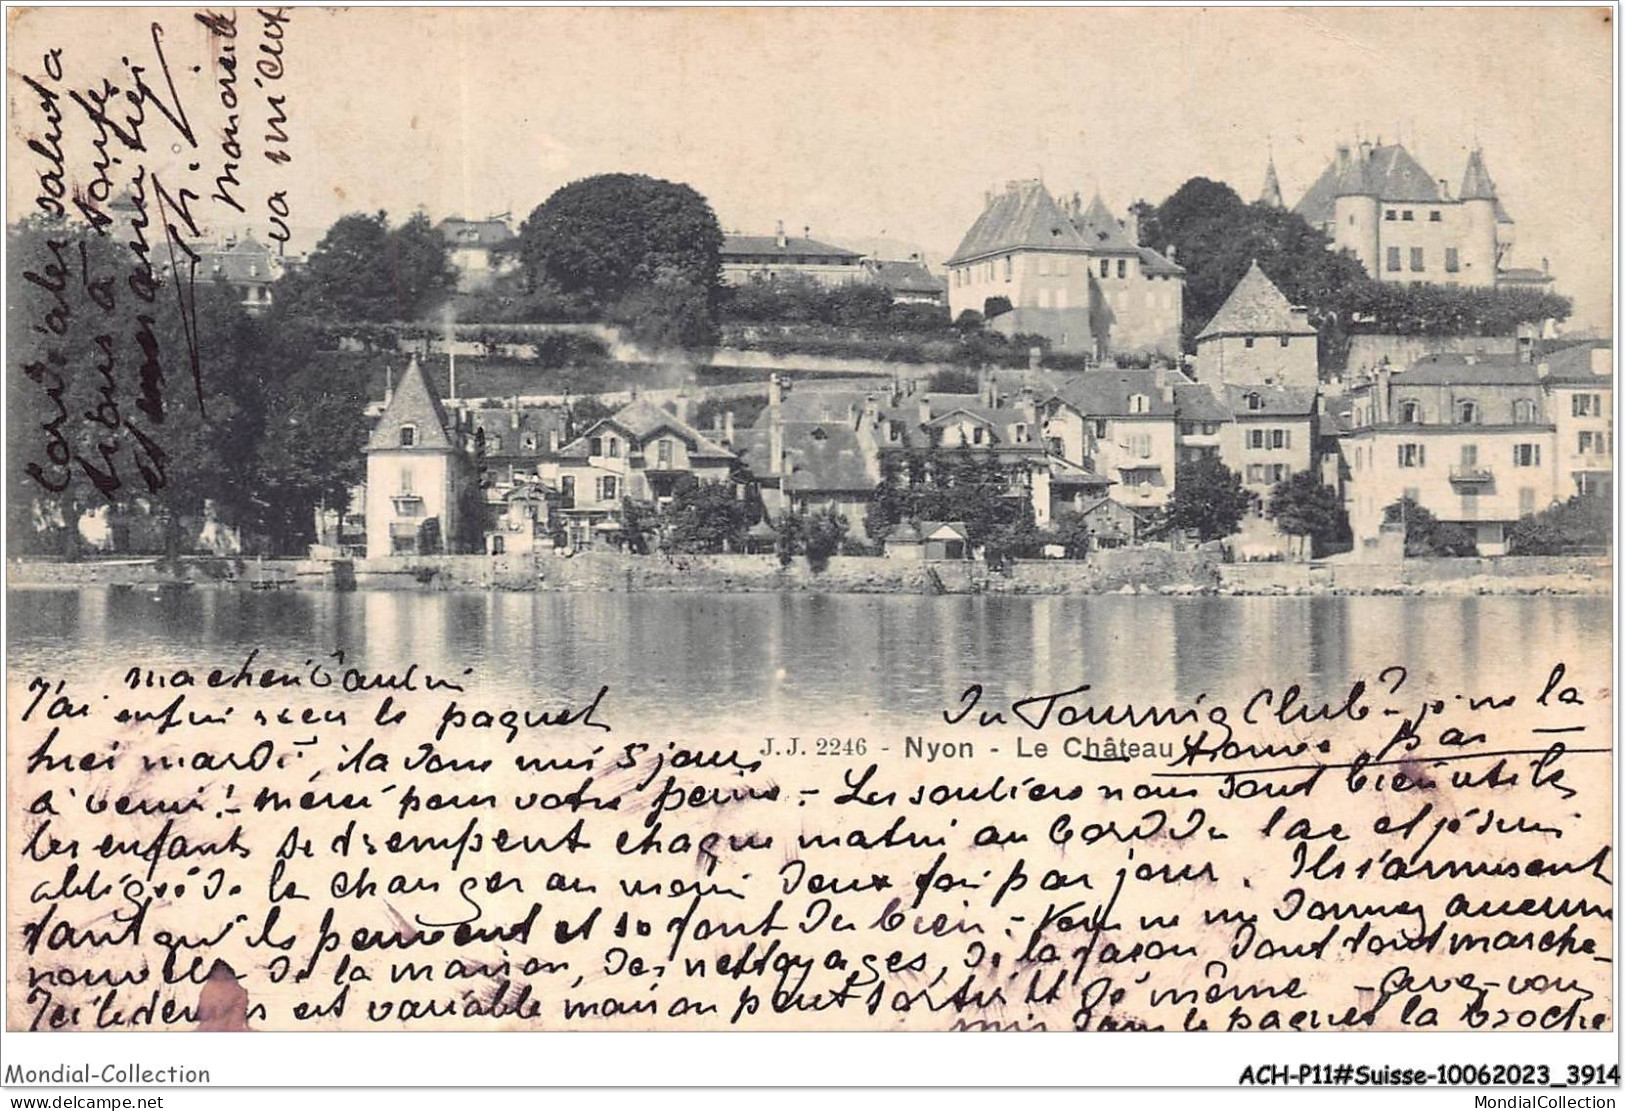 ma chère Pauline
J'ai enfin reçu le paquet
hier mardi, il a donc mis 5 jours
à venir! merci pour votre peine - Les souliers nous sont bien utiles
les enfants se trempent chaque matin au bord du lac et je suis
obligée de les changer au moins deux fois par jour. Ils s'amusent
tant qu'ils peuvent et se font du bien - Vous ne me donnez aucune
nouvelle de la maison, des nettoyages, de la façon dont tout marche
Ici le temps est variable mais on peut sortir tt de même - avez-vous
mis dans le paquet la broche
du Touring Club? je ne la
trouve pas
J.J. 2246 - Nyon - Le Château
Cordiales saluta
tions à toute
et mes amitiés
Th.
ma
va mieux
Mondial-Collection
ACH-P11#Suisse-10062023_3914
mondialcollection.com
MondialCollection